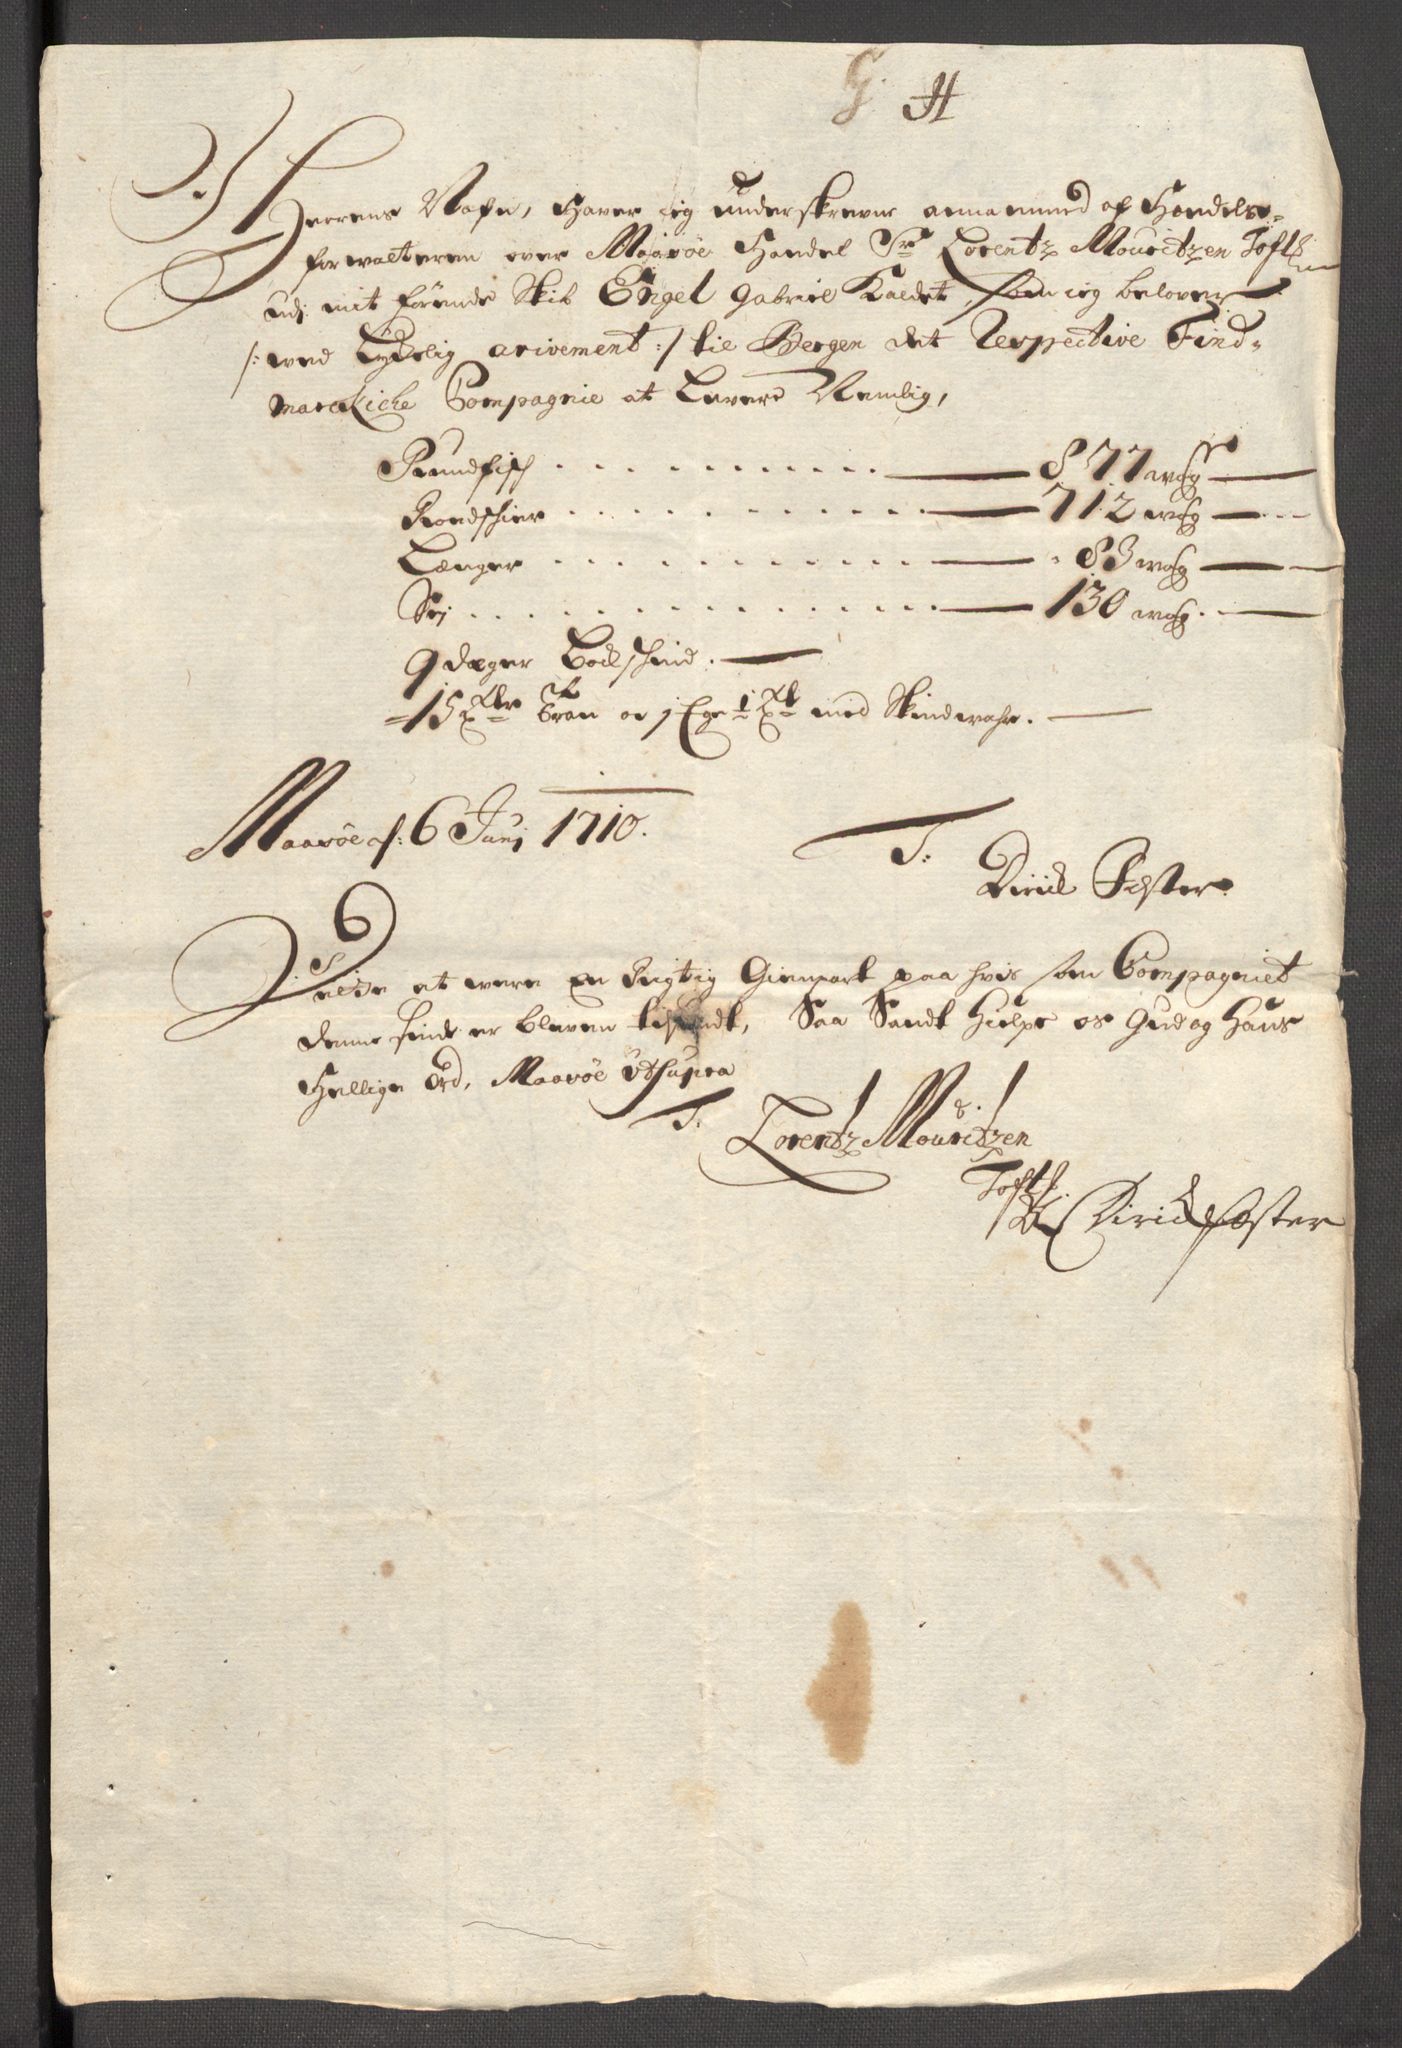 G. H
I Herrens Nafn, Haver ieg underskrevne annammed af Handels-
forwalteren over Maasöe Handel Sr Lorentz Mouritzen Toft
udj mit förende Skib Engel Gabriel Kaldet, som ieg belover
/: wed Lyckelig arivement :/ til Bergen det Respective Find-
marckiche Compagnie at Levere Nemblig,
Rundfisch . . . . . . . . 877 wog
Rondschier . . . . . . . . 712 wog
Længer . . . . . . . . 83 wog
Sej . . . . . . . . 130 wog
9 deger Bockschind.
15 Tran oc 1 med Skindwahre.
Maasöe d: 6 Junj 1710.
T:
Dirick Föster.
Dette at were en Rigtig Gienpart paa hvis som Compagniet
denne sinde er bleven tilsendt, Saa Sandt Hielpe os Gud og Hans
Hellige Ord, Maasöe Ut supra
T: Lorentz Mouritzen
Toft
Dirick föster